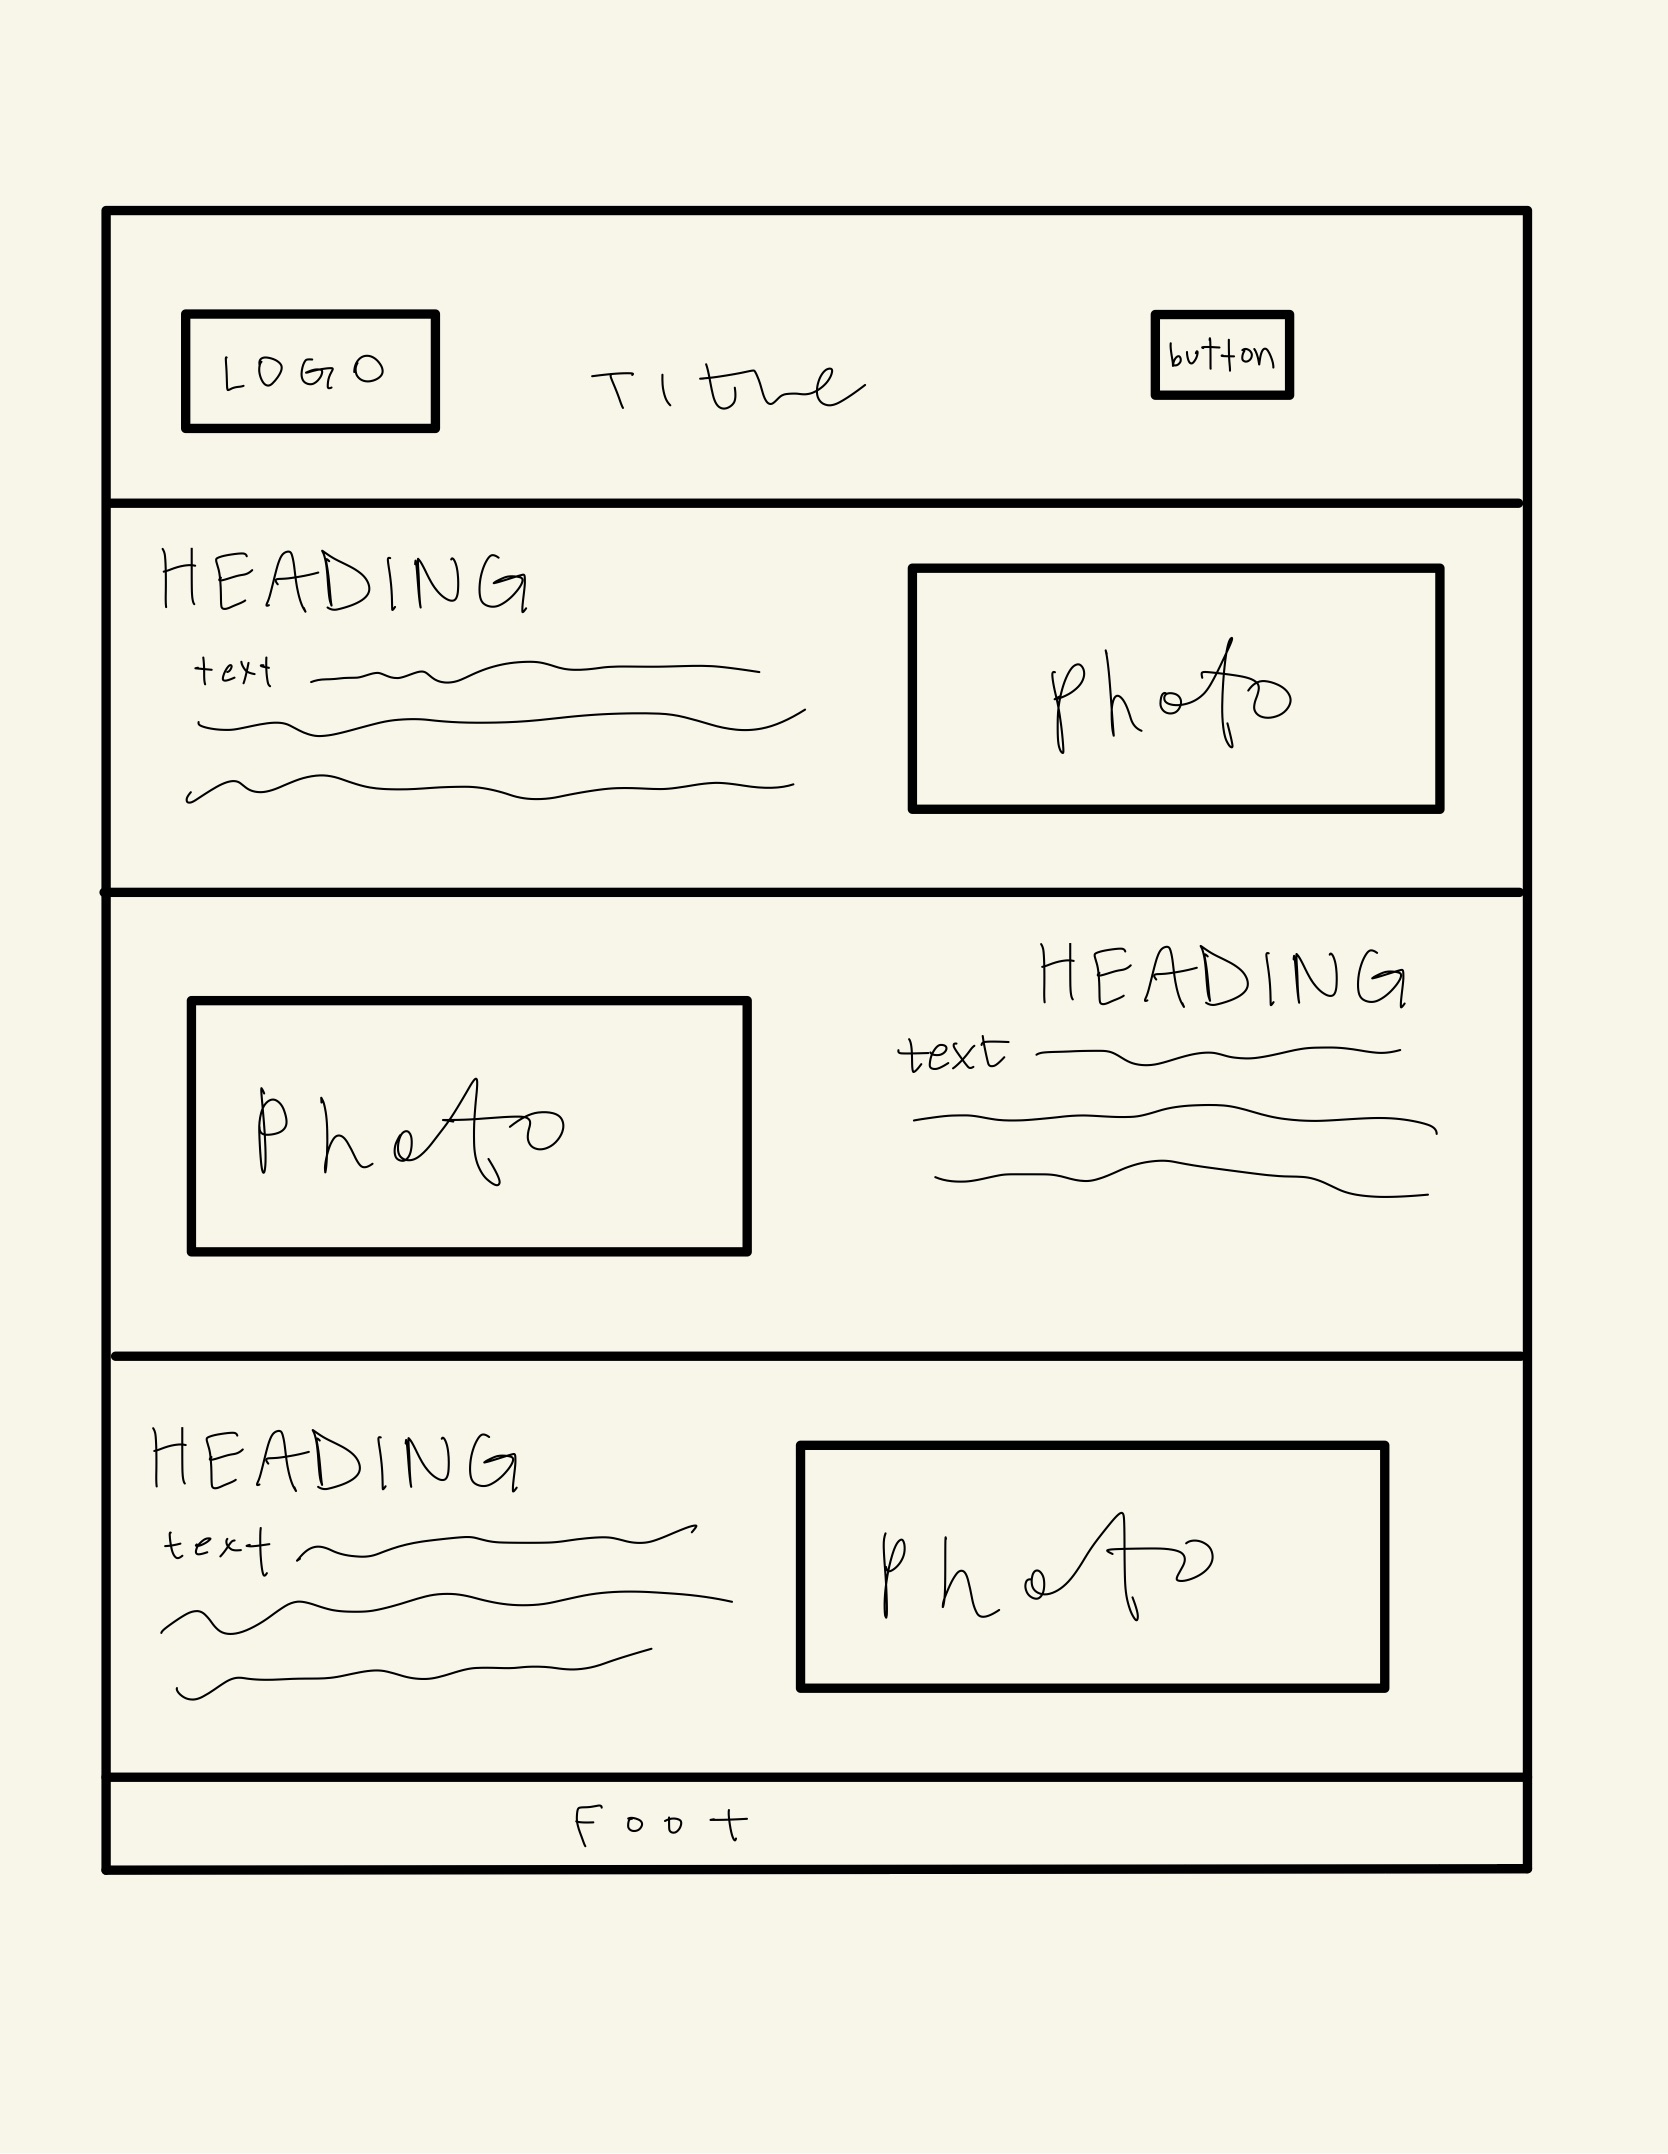 LOGO
Title
button
HEADING
text
Photo
HEADING
text
Photo
HEADING
text
Photo
Foot